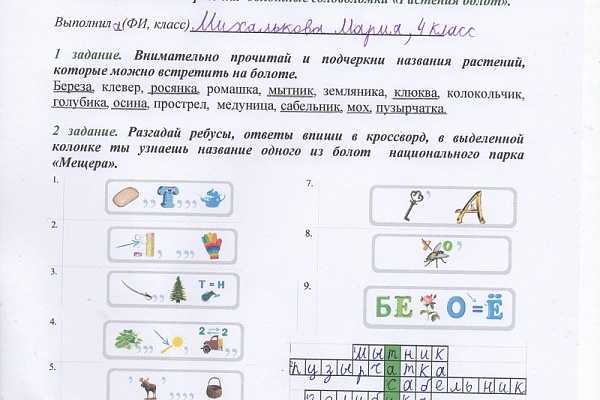 основные головоломки «Растения болот».
Выполнил а (ФИ, класс) Михалькова Мария, 4 класс
1 задание. Внимательно прочитай и подчеркни названия растений,
которые можно встретить на болоте.
Береза, клевер, росянка, ромашка, мытник, земляника, клюква, колокольчик,
голубика, осина, прострел, медуница, сабельник, мох, пузырчатка.
2 задание. Разгадай ребусы, ответы впиши в кроссворд, в выделенной
колонке ты узнаешь название одного из болот национального парка
«Мещера».
1.
,, ,, ,,,
2.
,, ,,,
3.
,, Т = Н
4.
,, ,, 2 = 2 ,,
5.
' ,,,,
7.
' А
8.
'
9.
БЕ О = Ё
мытник
пузырчатка
сабельник
голубика